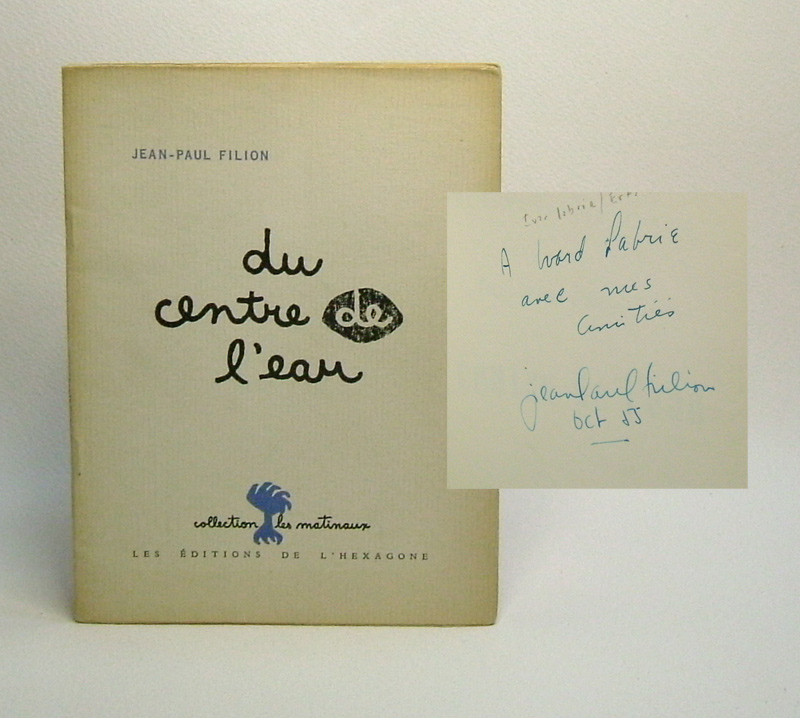 JEAN-PAUL FILION
du
centre de
l'eau
collection les matinaux
LES ÉDITIONS DE L'HEXAGONE
A Ward Labrie
avec mes
amitiés
jean Paul filion
Oct 55